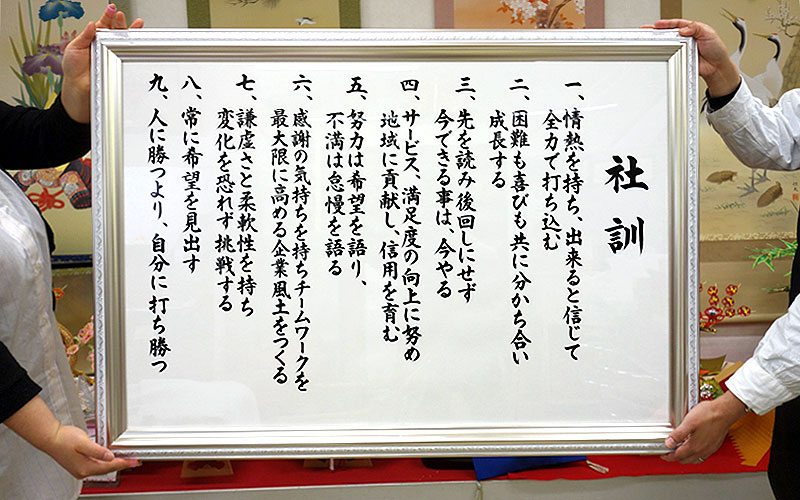 社訓
一、情熱を持ち、出来ると信じて
全力で打ち込む
二、困難も喜びも共に分かち合い
成長する
三、先を読み後回しにせず
今できる事は、今やる
四、サービス、満足度の向上に努め
地域に貢献し、信用を育む
五、努力は希望を語り、
不満は怠慢を語る
六、感謝の気持ちを持ちチームワークを
最大限に高める企業風土をつくる
七、謙虚さと柔軟性を持ち
変化を恐れず挑戦する
八、常に希望を見出す
九、人に勝つより、自分に打ち勝つ